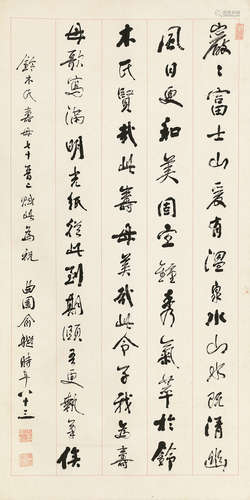 巖巖富士山爰有溫泉水山水既清幽
風日更和美固宜鍾秀氣萃於鈴
木氏賢哉此壽母美哉此令子我為壽
母歌寫滿明光紙從此到期頤吾更執筆俟
鈴木氏壽母七十晉二賦此為祝
曲園俞樾時年八十三